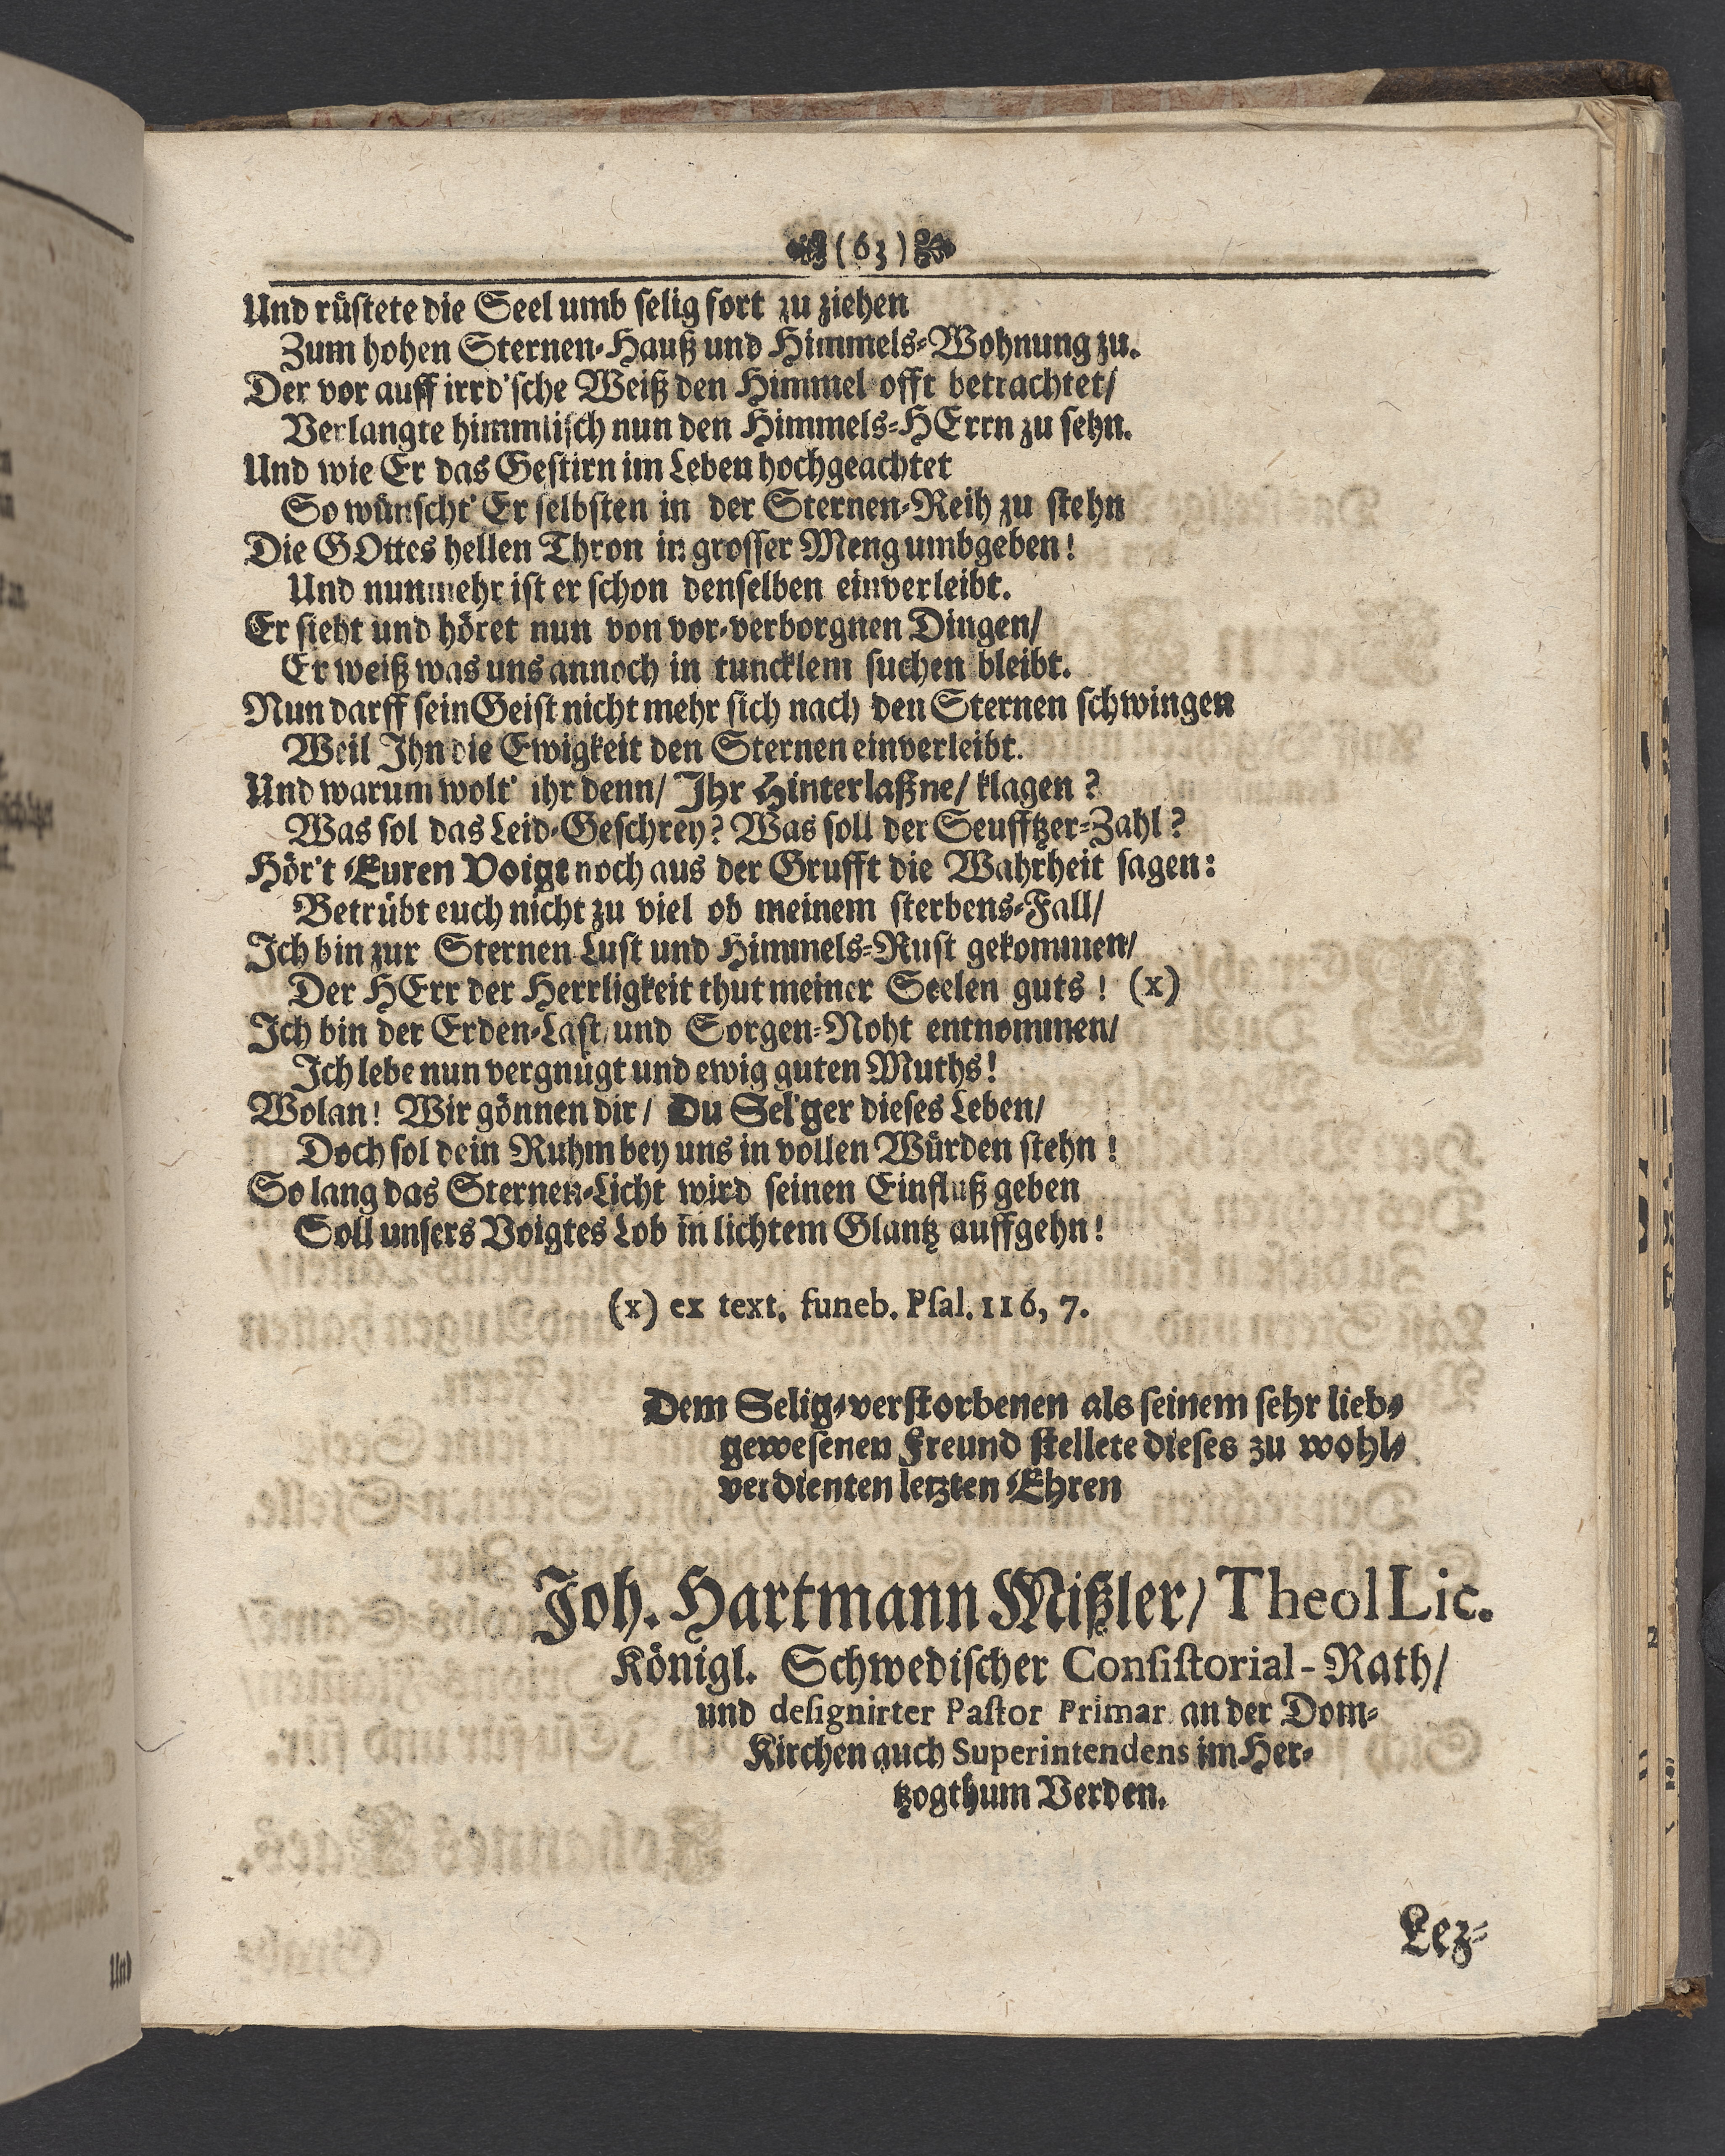 (63)
Und rüstete die Seel umb selig fort zu ziehen
Zum hohen Sternen-Hauß und Himmels-Wohnung zu.
Der vor auff irrd'sche Weiß den Himmel offt betrachtet/
Verlangte himmlisch nun den Himmels-HErrn zu sehn.
Und wie Er das Gestirn im Leben hochgeachtet
So wünscht' Er selbsten in der Sternen-Reih zu stehn
Die GOttes hellen Thron in grosser Meng umbgeben!
Und nunmehr ist er schon denselben einverleibt.
Er sieht und höret nun von vor-verborgnen Dingen/
Er weiß was uns annoch in tuncklem suchen bleibt.
Nun darff sein Geist nicht mehr sich nach den Sternen schwingen
Weil Ihn die Ewigkeit den Sternen einverleibt.
Und warum wolt' ihr denn/ Ihr Hinterlaßne/ klagen?
Was sol das Leid-Geschrey? Was soll der Seufftzer-Zahl?
Hör't Euren Voigt noch aus der Grufft die Wahrheit sagen:
Betrübt euch nicht zu viel ob meinem sterbens-Fall/
Ich bin zur Sternen-Lust und Himmels-Rust gekommen/
Der HErr der Herrligkeit thut meiner Seelen guts! (x)
Ich bin der Erden-Last/ und Sorgen-Noht entnommen/
Ich lebe nun vergnügt und ewig guten Muths!
Wolan! Wir gönnen dir/ Du Sel'ger dieses Leben/
Doch sol dein Ruhm bey uns in vollen Würden stehn!
So lang das Sternen-Licht wird seinen Einfluß geben
Soll unsers Voigtes Lob in lichtem Glantz auffgehn!
(x) ex text. funeb. Psal. 116, 7.
Dem Selig-verstorbenen als seinem sehr lieb-
gewesenen Freund stellete dieses zu wohl-
verdienten letzten Ehren
Joh. Hartmann Mißler/ Theol Lic.
Königl. Schwedischer Consistorial-Rath/
und designirter Pastor Primar. an der Dom-
Kirchen auch Superintendens im Her-
tzogthum Verden.
Lez-
Und